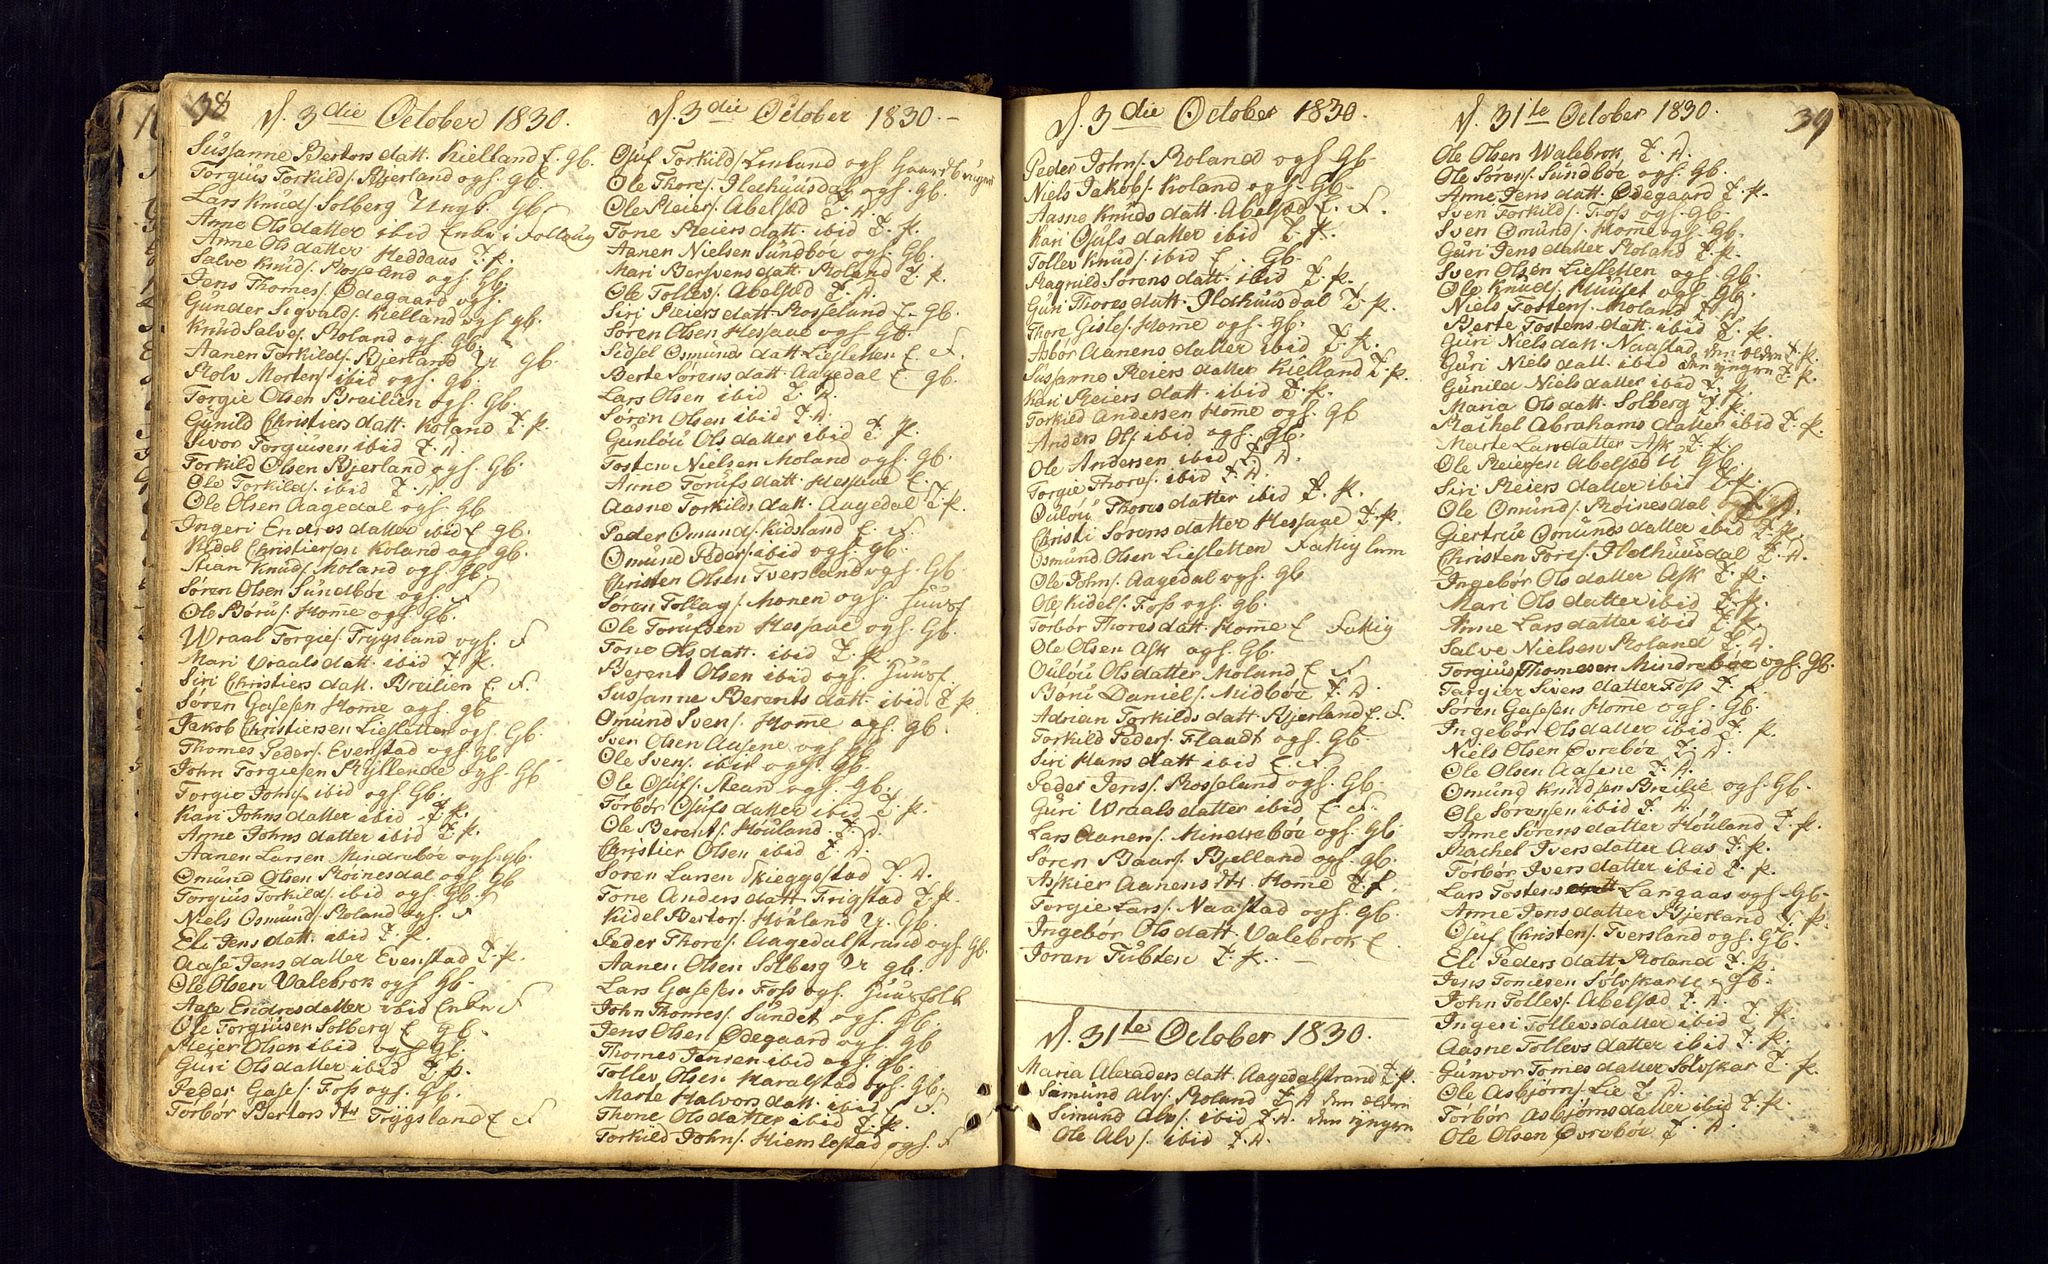 38
d. 3die October 1830.
Sussanne Bertors datt. Kielland E. Gb.
Torgiüs Torkilds. Bjerland ogh. Gb.
Lars Knüds. Solberg Üngk. Gb
Anne Olsdatter ibid Enke i
Anne Olsdatter Heddaas T. P.
Salve Knüds. Rosseland ogh. Gb.
Jens Thomes. Ødegaard ogh.
Günder Sigvalds. Kielland ogh. Gb.
Knüd Salves. Roland ogh. Gb.
Aanen Torkilds. Bjerland Gb.
Rolv Mortens. ibid ogh. Gb.
Torgie Olsen Breilien ogh. Gb.
Günild Christiers datt. Roland T. P.
Sivor Torgiüsen ibid T. D.
Torkild Olsen Bjerland ogh. Gb.
Ole Torkilds. ibid T. D.
Ole Olsen Aagedal ogh. Gb
Ingeri Endresdatter ibid E. Gb.
Kidel Christiersen Roland ogh. Gb.
Stian Knüds. Moland ogh. Gb.
Søren Olsen Sündbøe ogh. F
Ole Børüs. Home ogh. Gb.
Wraal Torgies. Trygsland ogh. F
Mari Vraals datt. ibid T. P.
Siri Christiers datt. Breilien E. F.
Søren Gasesen Home ogh. Gb
Jakob Christiersen Liesletten ogh. Gb.
Thomes Peders. Evenstad ogh. Gb.
John Torgiesen Ryllende ogh. Gb
Torgie Johns. ibid ogh. Gb.
Kari Johns datter ibid T. P.
Anne Johns datter ibid T. P.
Aanen Larsen Mindrebøe ogh. Gb.
Omund Olsen Røinesdal ogh. Gb
Torgiüs Torkilds. ibid ogh. Gb.
Niels Osmünds. Roland ogh. F
Eli Jens datt. ibid T. P.
Aase Jens datter Evenstad T. P.
Ole Olsen Valebrok ogh. Gb.
Aase Endresdatter ibid Enke F
Ole Torgiüsen Solberg E. Gb.
Reier Olsen ibid ogh. Gb.
Güri Olsdatter ibid T. P.
Peder Gases. Foss ogh. Gb.
Torbor Bertors dtr Trygsland E F
d. 3die October 1830.
Osüf Torkilds. Linland ogh.
Ole Thores. Ildhüüsdal ogh. Gb.
Ole Reiers. Abelsæd T. D
Tone Reiers datt. ibid T. P.
Aanen Nielsen Sündbøe ogh. Gb.
Mari Bersvens datt. Roland T. P.
Ole Tollevs. Abelsæd T. D.
Siri Reiers datt. Rosseland E. Gb.
Søren Olsen Hessaae ogh. Gb.
Sidsel Osmünds datt. Liesletten E. F.
Berte Sørens datt. Aagedal E. Gb.
Lars Olsen ibid T. D.
Søren Olsen ibid T. D.
Günloü Olsdatter ibid T. P.
Tosten Nielsen Moland ogh. Gb.
Anne Torüfs datt. Hessaae E.
Aasne Torkilds datt. Aagedal T. P.
Peder Omünds. Kidsland E. F.
Omünd Peders. ibid ogh. Gb.
Christen Olsen Tversland ogh. Gb
Søren Tollags. Monen ogh. Hüüsf.
Ole Torüfsen Hessaae ogh. Gb.
Tone Olsdatt. ibid T. P.
Berent Olsen ibid ogh. Hüüsf.
Sussanne Berents datt. ibid T. P.
Omund Svens. Home ogh. Gb.
Sven Olsen Aasene ogh. Gb
Ole Svens. ibid ogh. Gb.
Ole Osüfs. Stean ogh. Gb.
Torbor Osüfs datter ibid T. P.
Ole Berents. Houland T. D.
Christier Olsen ibid T. D.
Søren Larsen Skieggestad T. D.
Tone Anders datt. Frigstad T. P.
Kidel Bertors. Hvåland Gb.
Peder Thores. Aagedalstrand ogh. Gb.
Aanen Olsen Solberg Gb.
Lars Gasesen Foss ogh. Hüüsfolk
John Thomes. Sündet ogh. Gb.
Jens Olsen Ødegaard ogh. Gb
Thomes Jensen ibid ogh. Gb.
Tollev Olsen Haralstad ogh. Gb.
Marte Halvors datt. ibid E. F.
Thone Olsdatter ibid T. P.
Torkild Johns. Hiemlestad ogh. F
d. 3die October 1830.
Peder Johns. Roland ogh. Gb
Niels Jakobs. Roland ogh. Gb.
Aasne Knüds datter Abelsæd E. F.
Kari Osüfs datter ibid T. P.
Tollev Knüds. ibid E. Gb.
Ragnild Sørens datt. ibid T. P.
Güri Thores datt. Ildhüüsdal T. P.
Thore Gisles. Home ogh. Gb.
Asbor Aanens datter ibid T. P.
Sussanne Reiers datter Kielland T. P.
Kari Reiers datt. ibid T. P.
Torkild Andersen Home ogh. Gb
Anders Ols. ibid ogh. Gb.
Ole Andersen ibid T. D.
Torgie Thores. ibid T. D.
Oüloü Thores datter ibid T. P.
Christi Sørens datter Hessaae T. P.
Osmünd Olsen Liesletten Fattig Lem
Ole Johns. Aagedal ogh. Gb
Ole Kidels. Foss ogh. Gb.
Torbor Thores datt. Home E. Fattig
Ole Olsen Ask ogh. Gb.
Oüloü Olsdatter Moland E. F
Boni Daniels. Midbøe T. D.
Adrian Torkilds datt. Bjerland E. F.
Torkild Peders. Flaadt ogh. Gb.
Siri Hans datt ibid E. F
Peder Jens. Rosseland ogh. Gb
Güri Wraals datter ibid E. F.
Lars Aanens. Mindrebøe ogh. Gb.
Søren Baars. Bjelland ogh. Gb.
Askier Aanens dtr. Home T. P.
Torgie Lars. Naastad ogh. Gb.
Ingebor Olsdatt. Valebrok E
Joran Tübten T. P.
d. 31te October 1830.
Maria Alexaders datt. Aagedalstrand T. P.
Simünd Alvs. Roland T. D den ældre
Simünd Alvs. ibid T. D. den yngre
Ole Alvs. ibid T. D.
39
d. 31te October 1830.
Ole Olsen Walebrok T. D.
Ole Sørens. Sündbøe ogh. Gb.
Anne Jens datt. Ødegaard T. P.
Sven Torkilds. Foss ogh. Gb.
Sven Omünds. Home ogh. Gb.
Güri Jens datter Roland T. P.
Sven Olsen Liesletten ogh. Gb.
Ole Knüds. Hüüset ogh. Gb.
Niels Tostens. Moland T. D
Berte Tostens datt. ibid T. P.
Güri Niels datt. Naastad den ældre T. P.
Güri Niels datt. ibid den yngre T. P.
Günild Niels datter ibid T. P.
Maria Olsdatt. Solberg T. P.
Rachel Abrahams datter ibid T. P.
Marte Larsdatter Ask T. P.
Ole Reiersen Abelsæd Gb
Siri Reiers datter ibid T. P.
Ole Omünds. Røinesdal
Giertrüe Omünds datter ibid T. P.
Christen Tores. Ildhüüsdal T. D.
Ingebor Olsdatter Ask T. P.
Mari Olsdatter ibid T. P.
Anne Larsdatter ibid T. P.
Salve Nielsen Roland T. D.
Torgiüs Thomesen Mindrebøe ogh. Gb.
Targier Sivers datter Foss T. P.
Søren Gasesen Home ogh. Gb.
Ingebor Olsdatter ibid T. P.
Niels Olsen Øvrebøe T. D.
Ole Olsen Aasene T. D.
Omünd Knüdsen Breilie ogh. Gb.
Ole Sørensen ibid T. D.
Anne Sørens datter Houland T. P.
Rachel Ivers datter Aas T. P.
Torbor Ivers datter ibid T. P.
Lars Tostens. Langaas ogh. Gb.
Anne Jens datter Bjerland T. P.
Osüf Christens. Tversland ogh. Gb.
Eli Peders datt. Roland T. P.
Jens Tomesen Sølvskar Gb.
John Tollevs. Abelsæd T. D.
Ingeri Tollevs datter ibid T. P.
Aasne Tollevs datter ibid T. P.
Günvor Tomes datter Sølvskar T. P.
Ole Asbjørns. Lie T. D.
Torbor Asbjørns datter ibid T. P.
Ole Olsen Øvrebøe T. D.